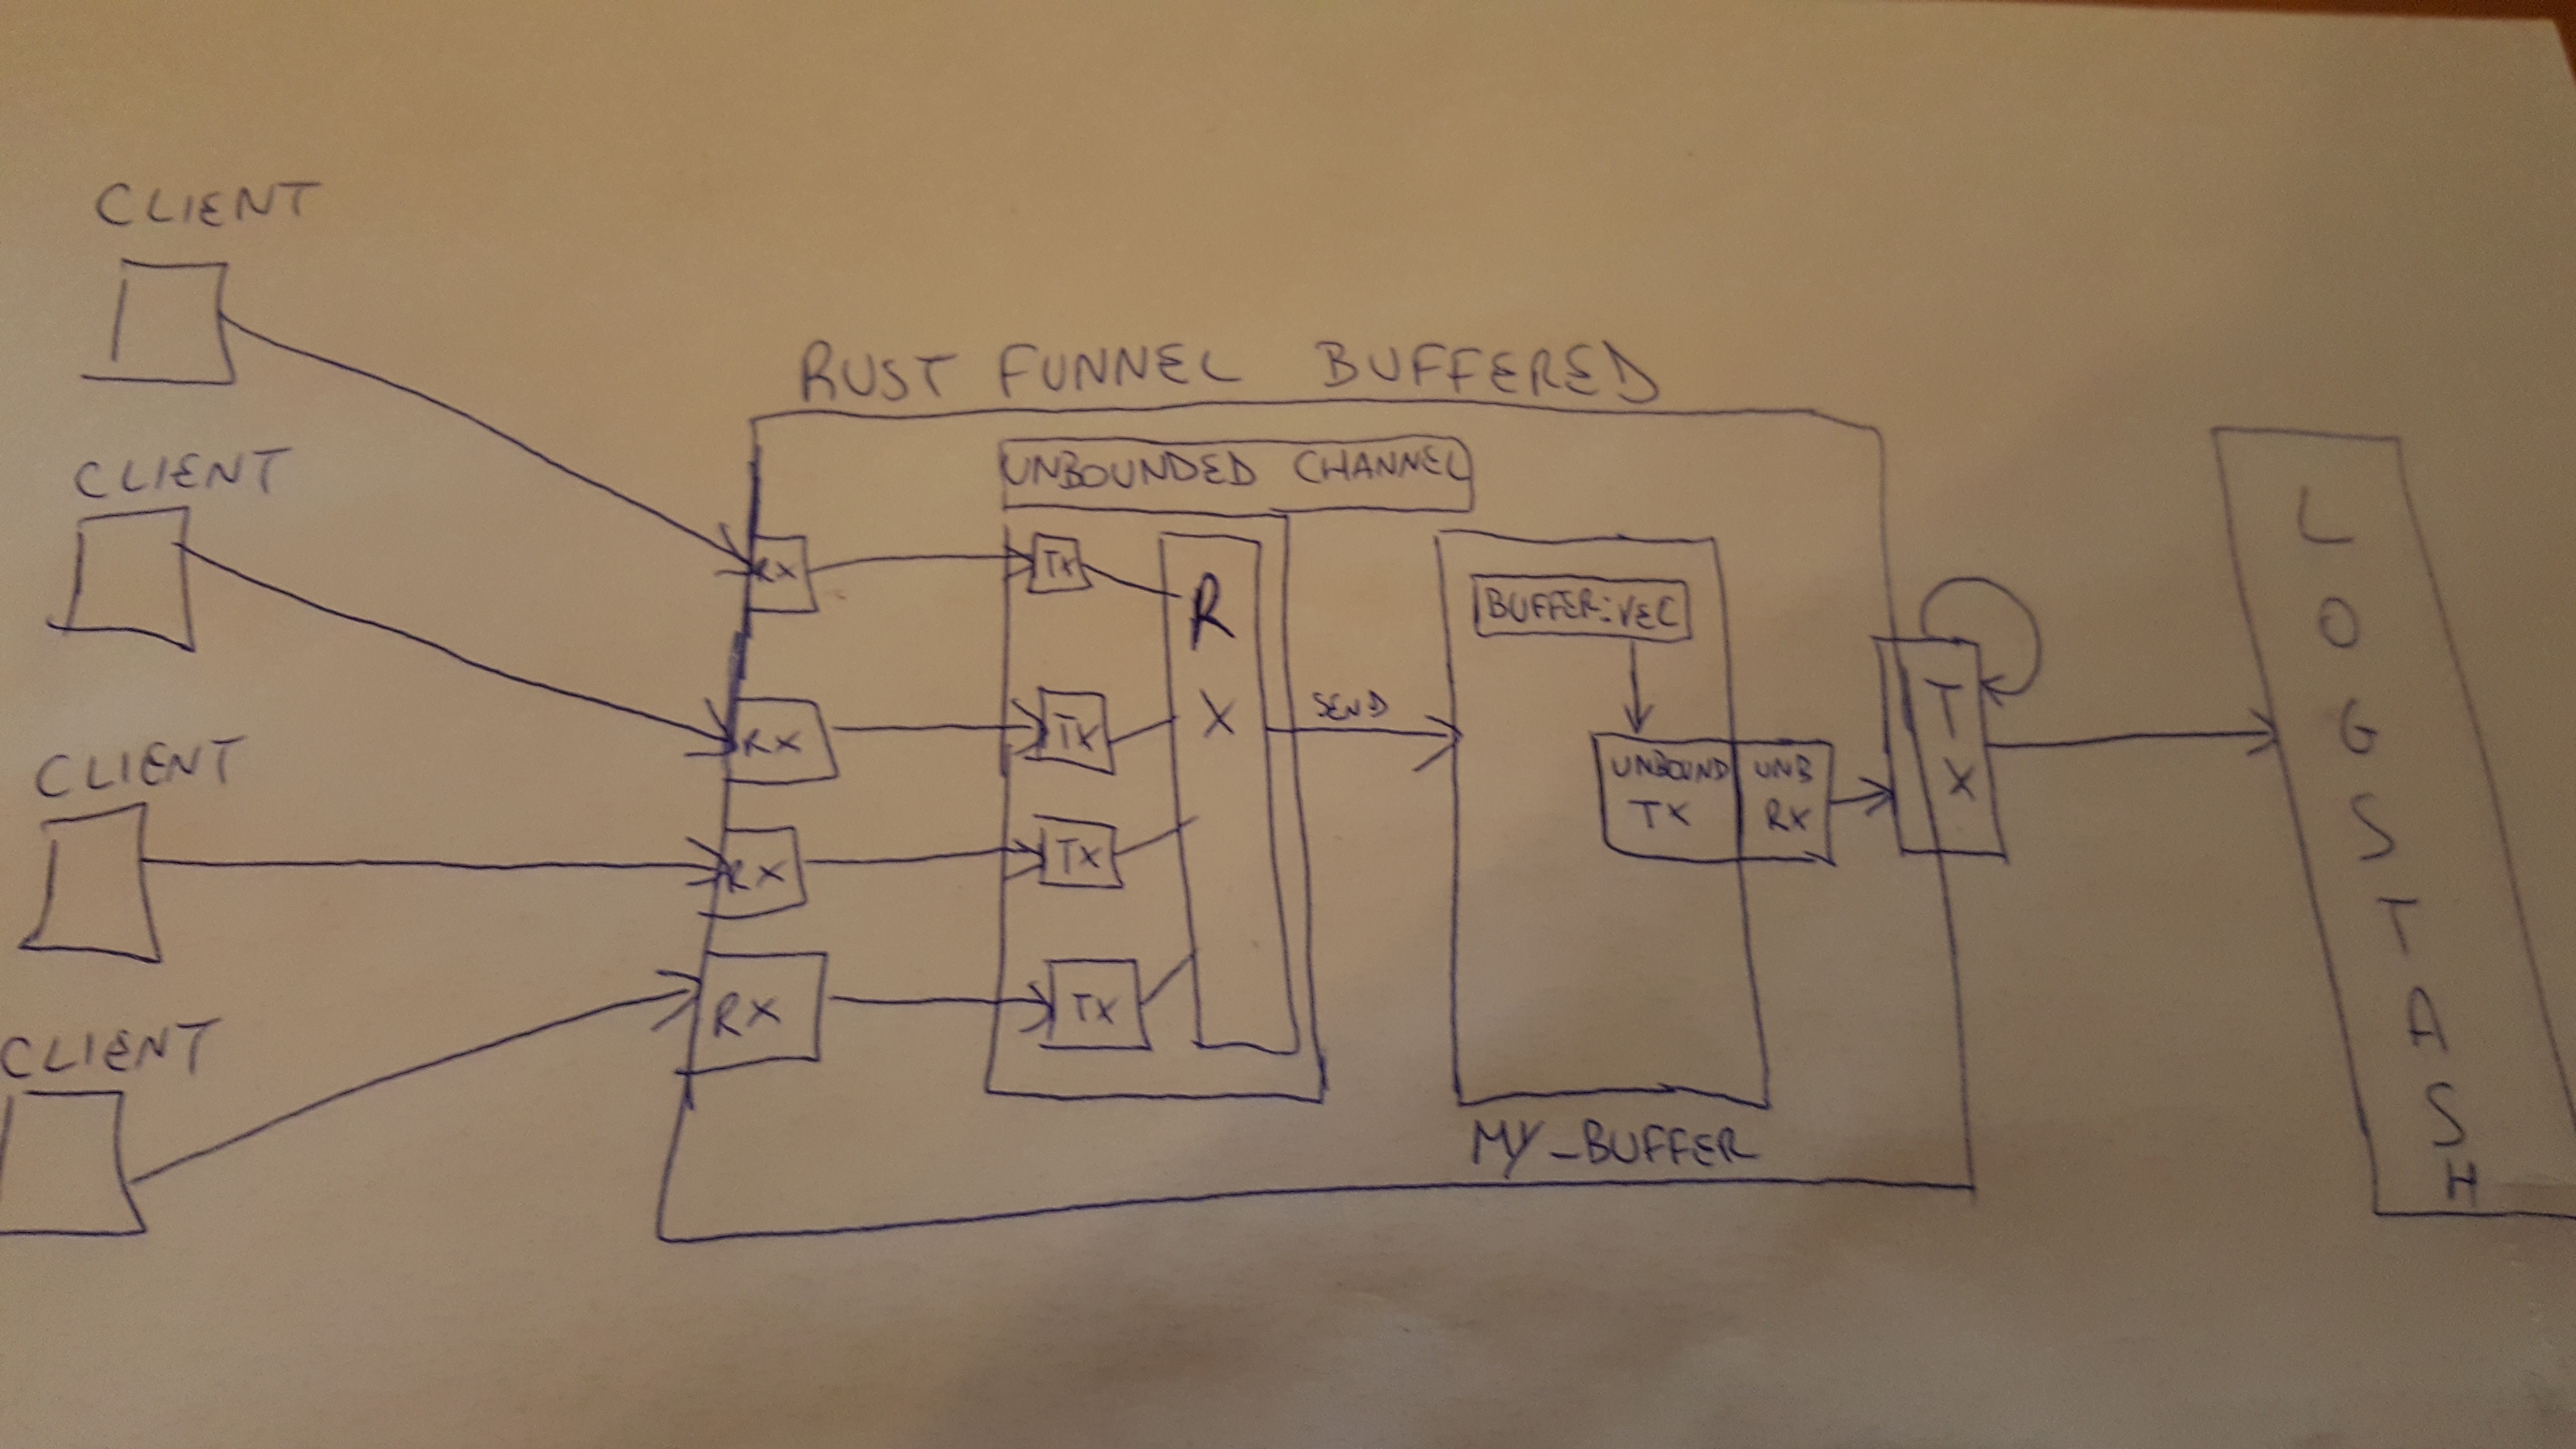 CLIENT
CLIENT
CLIENT
CLIENT
RUST FUNNEL BUFFERED
UNBOUNDED CHANNEL
RX
RX
RX
RX
TX
TX
TX
TX
R
X
SEND
BUFFER:VEC
UNBOUND
TX
UNB
RX
MY_BUFFER
T
X
L
O
G
S
T
A
S
H